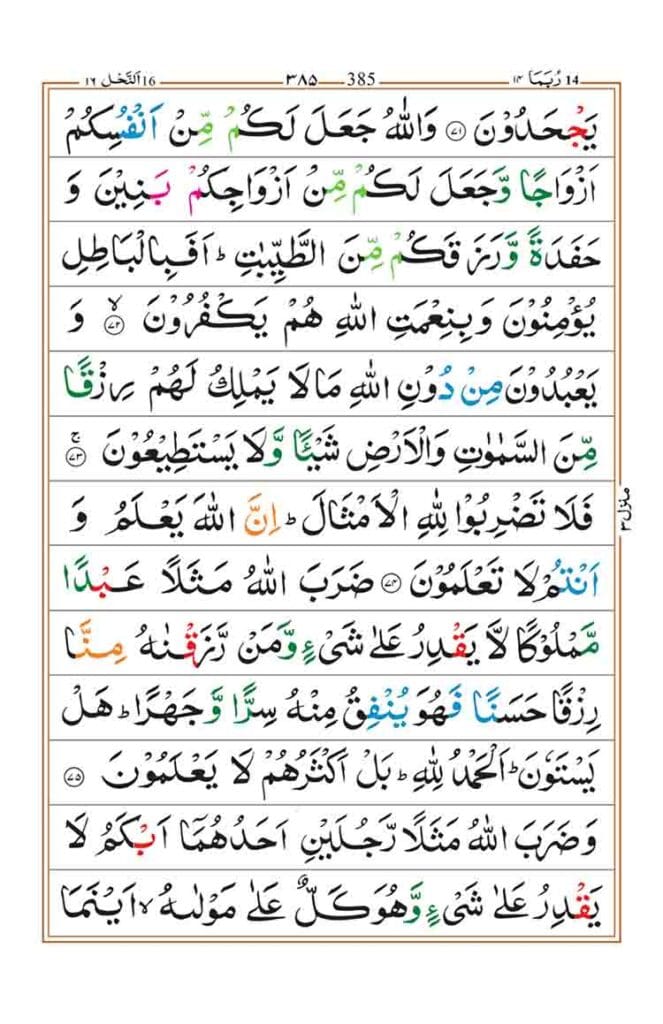 رُبَمَا ١٤ 14 385 ٣٨٥ 16 اَلنَّحْل ١٦
يَجْحَدُوْنَ ﴿٧١﴾ وَاللّٰهُ جَعَلَ لَكُمْ مِّنْ اَنْفُسِكُمْ
اَزْوَاجًا وَّجَعَلَ لَكُمْ مِّنْ اَزْوَاجِكُمْ بَنِيْنَ وَ
حَفَدَةً وَّرَزَقَكُمْ مِّنَ الطَّيِّبٰتِ ؕ اَفَبِالْبَاطِلِ
يُؤْمِنُوْنَ وَبِنِعْمَتِ اللّٰهِ هُمْ يَكْفُرُوْنَ ۙ﴿٧٢﴾ وَ
يَعْبُدُوْنَ مِنْ دُوْنِ اللّٰهِ مَا لَا يَمْلِكُ لَهُمْ رِزْقًا
مِّنَ السَّمٰوٰتِ وَالْاَرْضِ شَيْـًٔا وَّلَا يَسْتَطِيْعُوْنَ ۚ﴿٧٣﴾
فَلَا تَضْرِبُوْا لِلّٰهِ الْاَمْثَالَ ؕ اِنَّ اللّٰهَ يَعْلَمُ وَ
اَنْتُمْ لَا تَعْلَمُوْنَ ﴿٧٤﴾ ضَرَبَ اللّٰهُ مَثَلًا عَبْدًا
مَّمْلُوْكًا لَّا يَقْدِرُ عَلٰى شَيْءٍ وَّمَنْ رَّزَقْنٰهُ مِنَّا
رِزْقًا حَسَنًا فَهُوَ يُنْفِقُ مِنْهُ سِرًّا وَّجَهْرًا ؕ هَلْ
يَسْتَوٗنَ ؕ اَلْحَمْدُ لِلّٰهِ ؕ بَلْ اَكْثَرُهُمْ لَا يَعْلَمُوْنَ ﴿٧٥﴾
وَضَرَبَ اللّٰهُ مَثَلًا رَّجُلَيْنِ اَحَدُهُمَاۤ اَبْكَمُ لَا
يَقْدِرُ عَلٰى شَيْءٍ وَّهُوَ كَلٌّ عَلٰى مَوْلٰىهُ ۙ اَيْنَمَا
منزل ٣